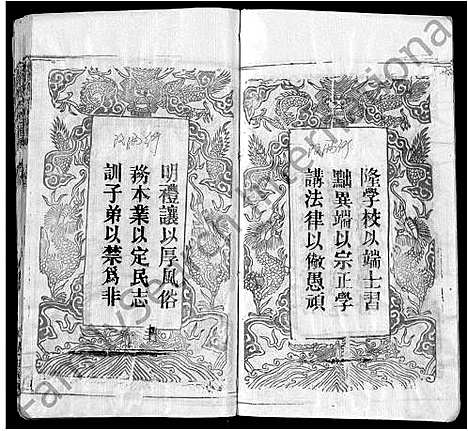 隆學校以端士習
黜異端以宗正學
講法律以儆愚頑
明禮讓以厚風俗
務本業以定民志
訓子弟以禁爲非
Family Search International